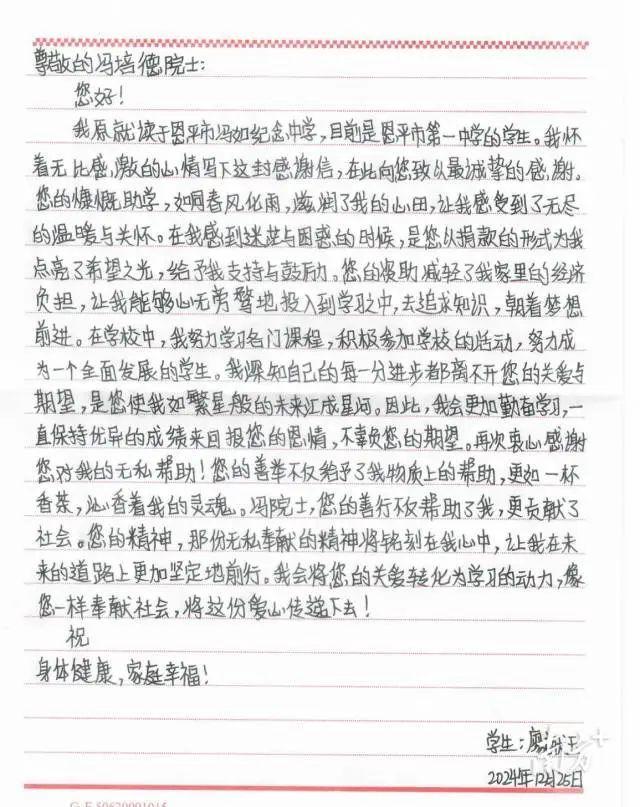 尊敬的冯培德院士：
您好！
我原就读于恩平市冯如纪念中学，目前是恩平市第一中学的学生。我怀
着无比感激的心情写下这封感谢信，在此向您致以最诚挚的感谢。
您的慷慨助学，如同春风化雨，滋润了我的心田，让我感受到了无尽
的温暖与关怀。在我感到迷茫与困惑的时候，是您以捐款的形式为我
点亮了希望之光，给予我支持与鼓励。您的资助减轻了我家里的经济
负担，让我能够心无旁骛地投入到学习之中，去追求知识，朝着梦想
前进。在学校中，我努力学习各门课程，积极参加学校的活动，努力成
为一个全面发展的学生。我深知自己的每一分进步都离不开您的关爱与
期望，是您使我如繁星般的未来汇成星河。因此，我会更加勤奋学习，一
直保持优异的成绩来回报您的恩情，不辜负您的期望。再次衷心感谢
您对我的无私帮助！您的善举不仅给予了我物质上的帮助，更如一杯
香茶，沁香着我的灵魂。冯院士，您的善行不仅帮助了我，更贡献了
社会。您的精神，那份无私奉献的精神将铭刻在我心中，让我在未
来的道路上更加坚定地前行。我会将您的关爱转化为学习的动力，像
您一样奉献社会，将这份爱心传递下去！
祝
身体健康，家庭幸福！
学生：廖
南方+
2024年12月25日